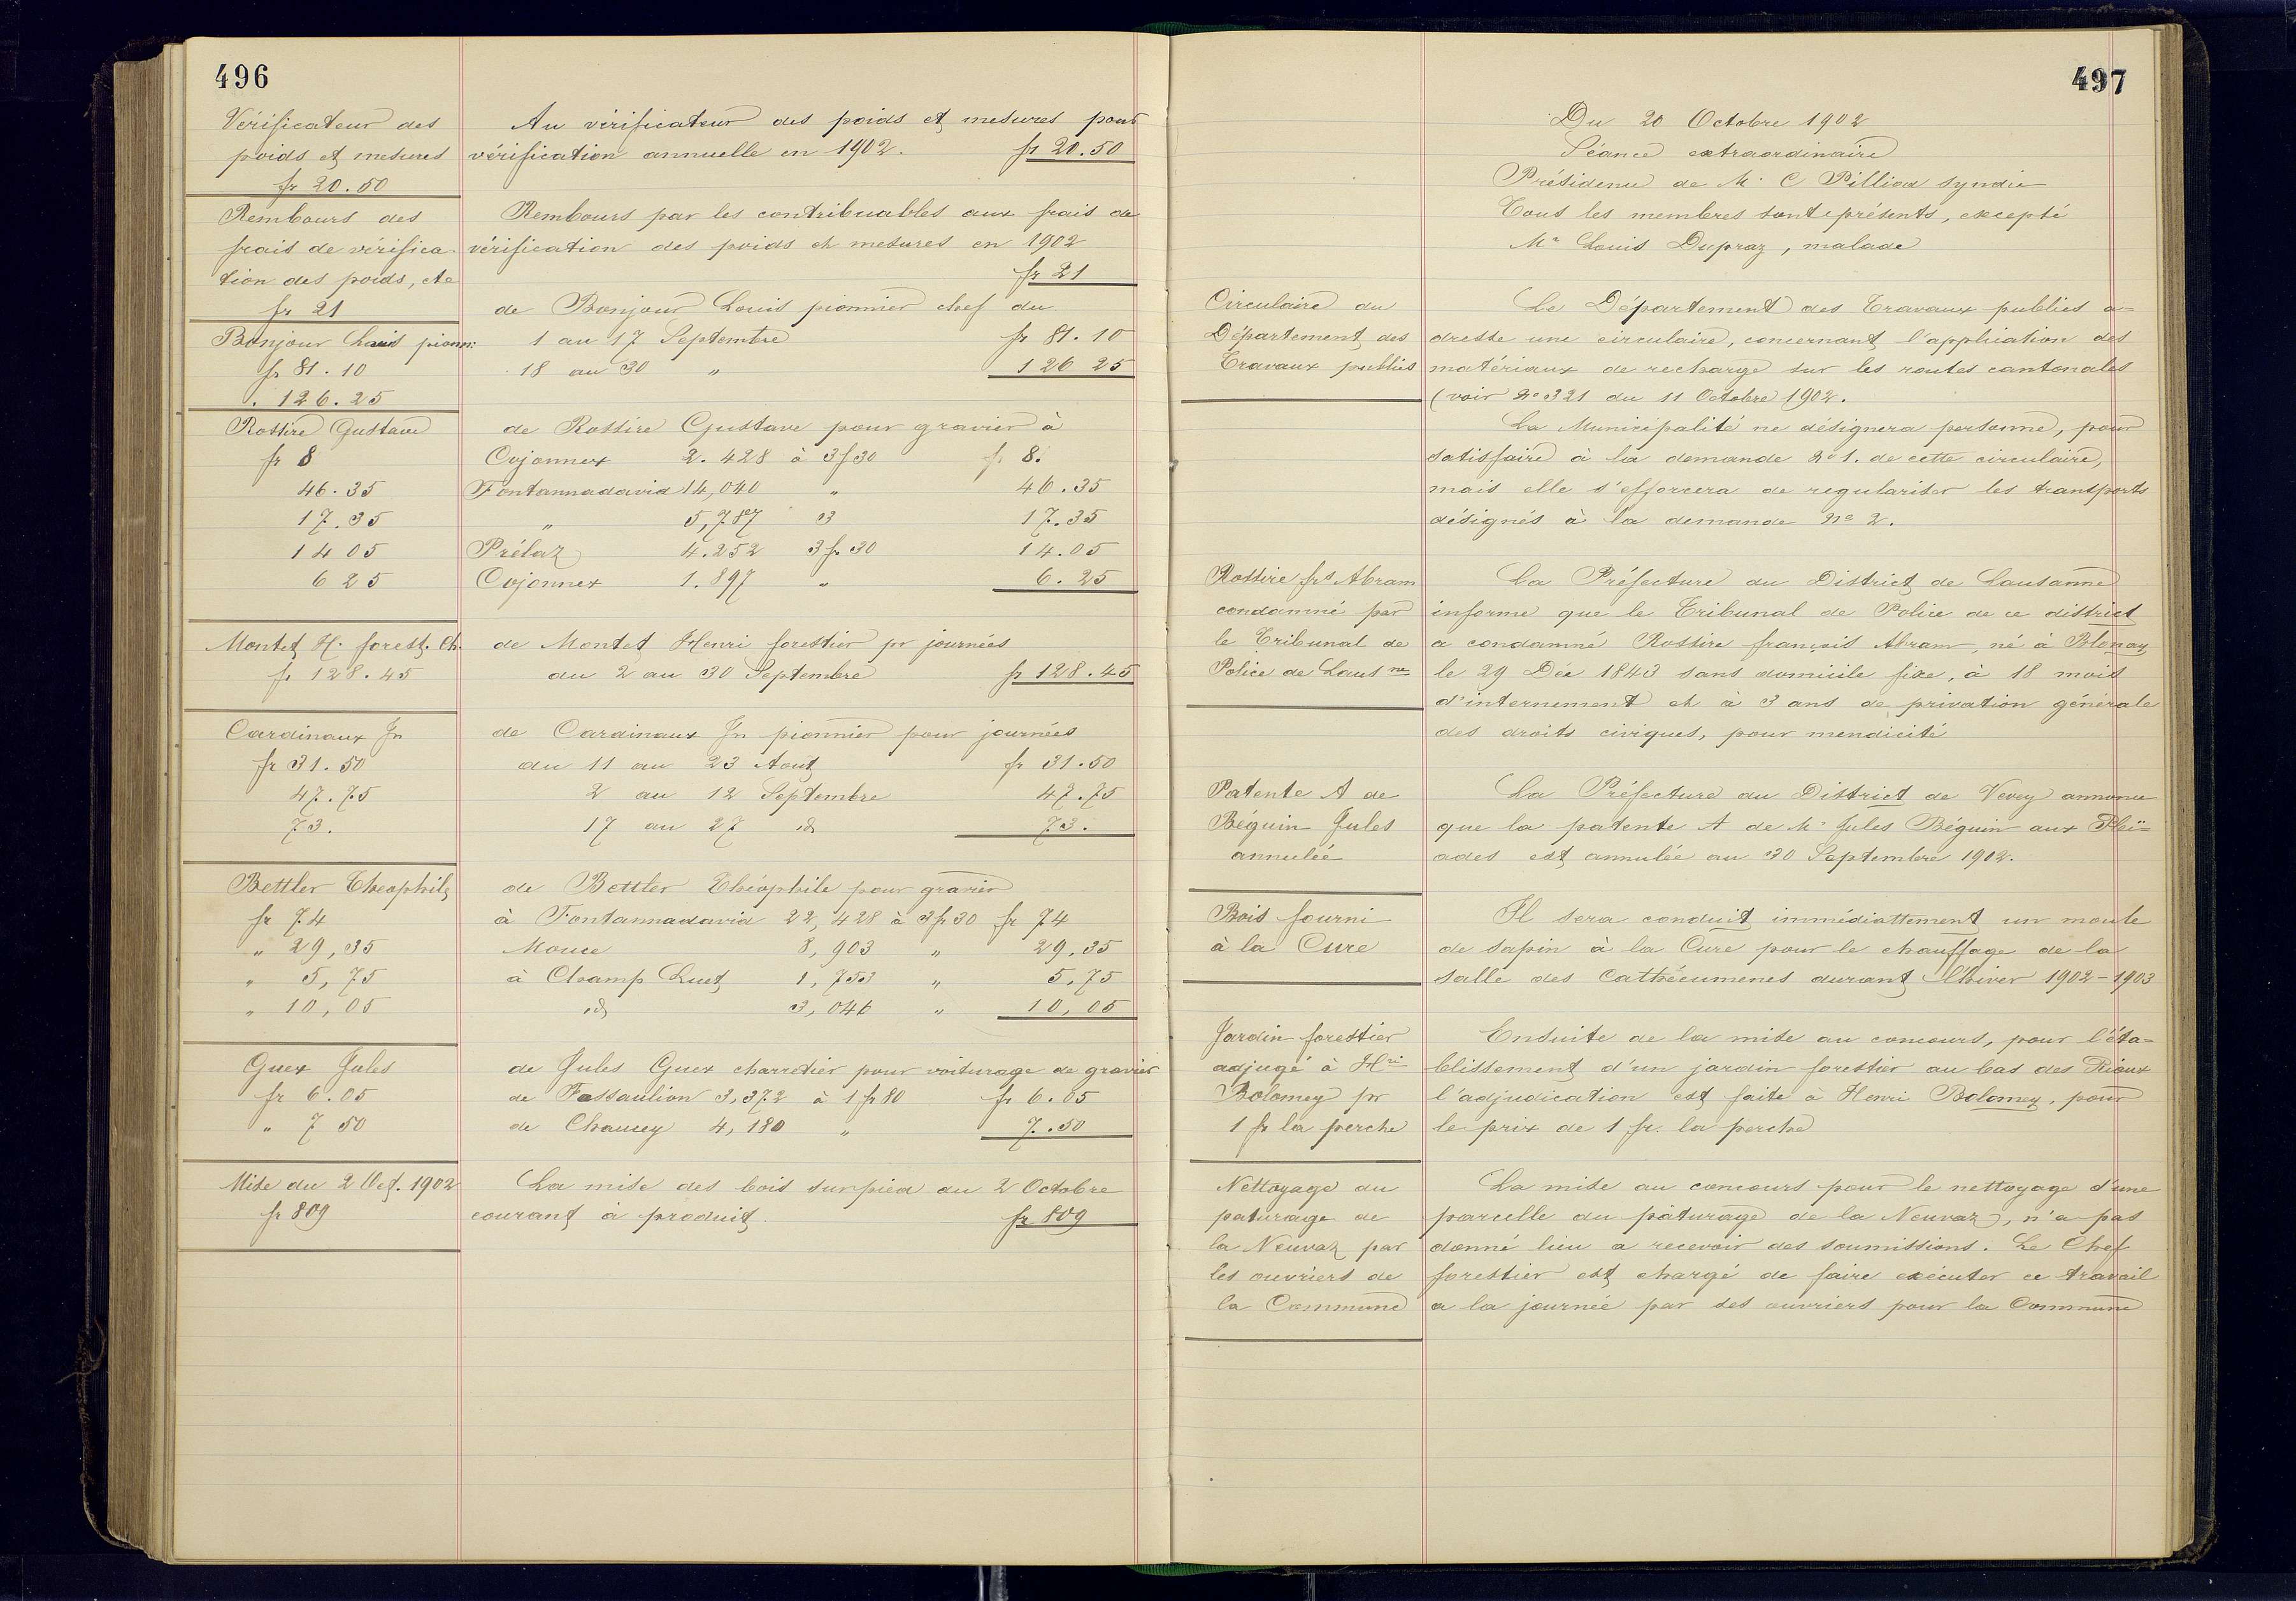 496
Vérificateur des
poids et mesures
fr 20.50
Au vérificateur des poids et mesures pour
vérification annuelle en 1902. fr 20.50
Rembours des
frais de vérifica-
tion des poids, etc
fr 21
Rembours par les contribuables aux frais de
vérification des poids et mesures en 1902
fr 21
Bonjour Louis pionn:
fr 81.10
. 126.25
de Bonjour Louis pionnier chef du
1 au 17 Septembre fr 81.10
18 au 30 " 126 25
Rossire Gustave
fr 8
46.35
17.35
14 05
6 25
de Rossire Gustave pour gravier à
Cojonnex 2.428 à 3f30 fr 8.
Fontannadavid 14,040 " 46.35
" 5,787 3 17.35
Prélaz 4.252 3 f. 30 14.05
Cojonnex 1.897 " 6.25
Montet H. forest. Ch.
fr 128.45
de Montet Henri forestier pr journées
du 2 au 30 Septembre fr 128.45
Cardinaux Jn
fr 31.50
47.75
73.
de Cardinaux Jn pionnier pour journées
du 11 au 23 Aout fr 31.50
2 au 12 Septembre 47.75
17 au 27 id 73.
Bettler Theophile
fr 74
" 29,35
" 5,75
" 10,05
de Bettler Théophile pour gravier
à Fontannadavid 22,428 à 3fr30 fr 74
Mouce 8,903 " 29,35
à Champ Luet 1,753 " 5.75
id 3,046 " 10,05
Guex Jules
fr 6.05
" 7 50
de Jules Guex charretier pour voiturage de gravier
de Fassaulion 3,372 à 1 fr 80 fr 6.05
de Chaucey 4,180 " 7.50
Mise du 2 Oct. 1902
fr 809
La mise des bois sur pied du 2 Octobre
courant a produit. fr 809
497
Du 20 Octobre 1902
Séance extraordinaire
Présidence de Mr C Pilliod syndic
Tous les membres sont présents, excepté
Mr Louis Dupraz, malade
Circulaire du
Département des
Travaux publics
Le Département des Travaux publics a-
dresse une circulaire, concernant l'application des
matériaux de recharge sur les routes cantonales
(voir No 321 du 11 Octobre 1902.
La Municipalité ne désignera personne, pour
satisfaire à la demande No 1. de cette circulaire,
mais elle s'efforcera de regulariser les transports
désignés à la demande No 2.
Rossire frs Abram
condamné par
le Tribunal de
Police de Laus ne
La Préfecture du District de Lausanne
informe que le Tribunal de Police de ce district
a condamné Rossire françois Abram, né à Blonay
le 29 Déc 1843 sans domicile fixe, à 18 mois
d'internement et à 3 ans de privation générale
des droits civiques, pour mendicité
Patente A de
Béguin Jules
annulée
La Préfecture du District de Vevey annonce
que la patente A de Mr Jules Béguin aux Pléï-
ades est annulée au 30 Septembre 1902.
Bois fourni
à la Cure
Il sera conduit immédiattement un moule
de sapin à la Cure pour le chauffage de la
salle des Cathécumenes durant l'hiver 1902-1903
Jardin forestier
adjugé à Hri
Bolomey pr
1 fr la perche
Ensuite de la mise au concours, pour l'éta-
blissement d'un jardin forestier au bas des Riaux
l'adjudication est faite à Henri Bolomey, pour
le prix de 1 fr. la perche
Nettoyage du
paturage de
la Neuvaz par
les ouvriers de
la Commune
La mise au concours pour le nettoyage d'une
parcelle du pâturage de la Neuvaz, n'a pas
donné lieu a recevoir des soumissions. Le Chef
forestier est chargé de faire exécuter ce travail
a la journée par des ouvriers pour la Commune